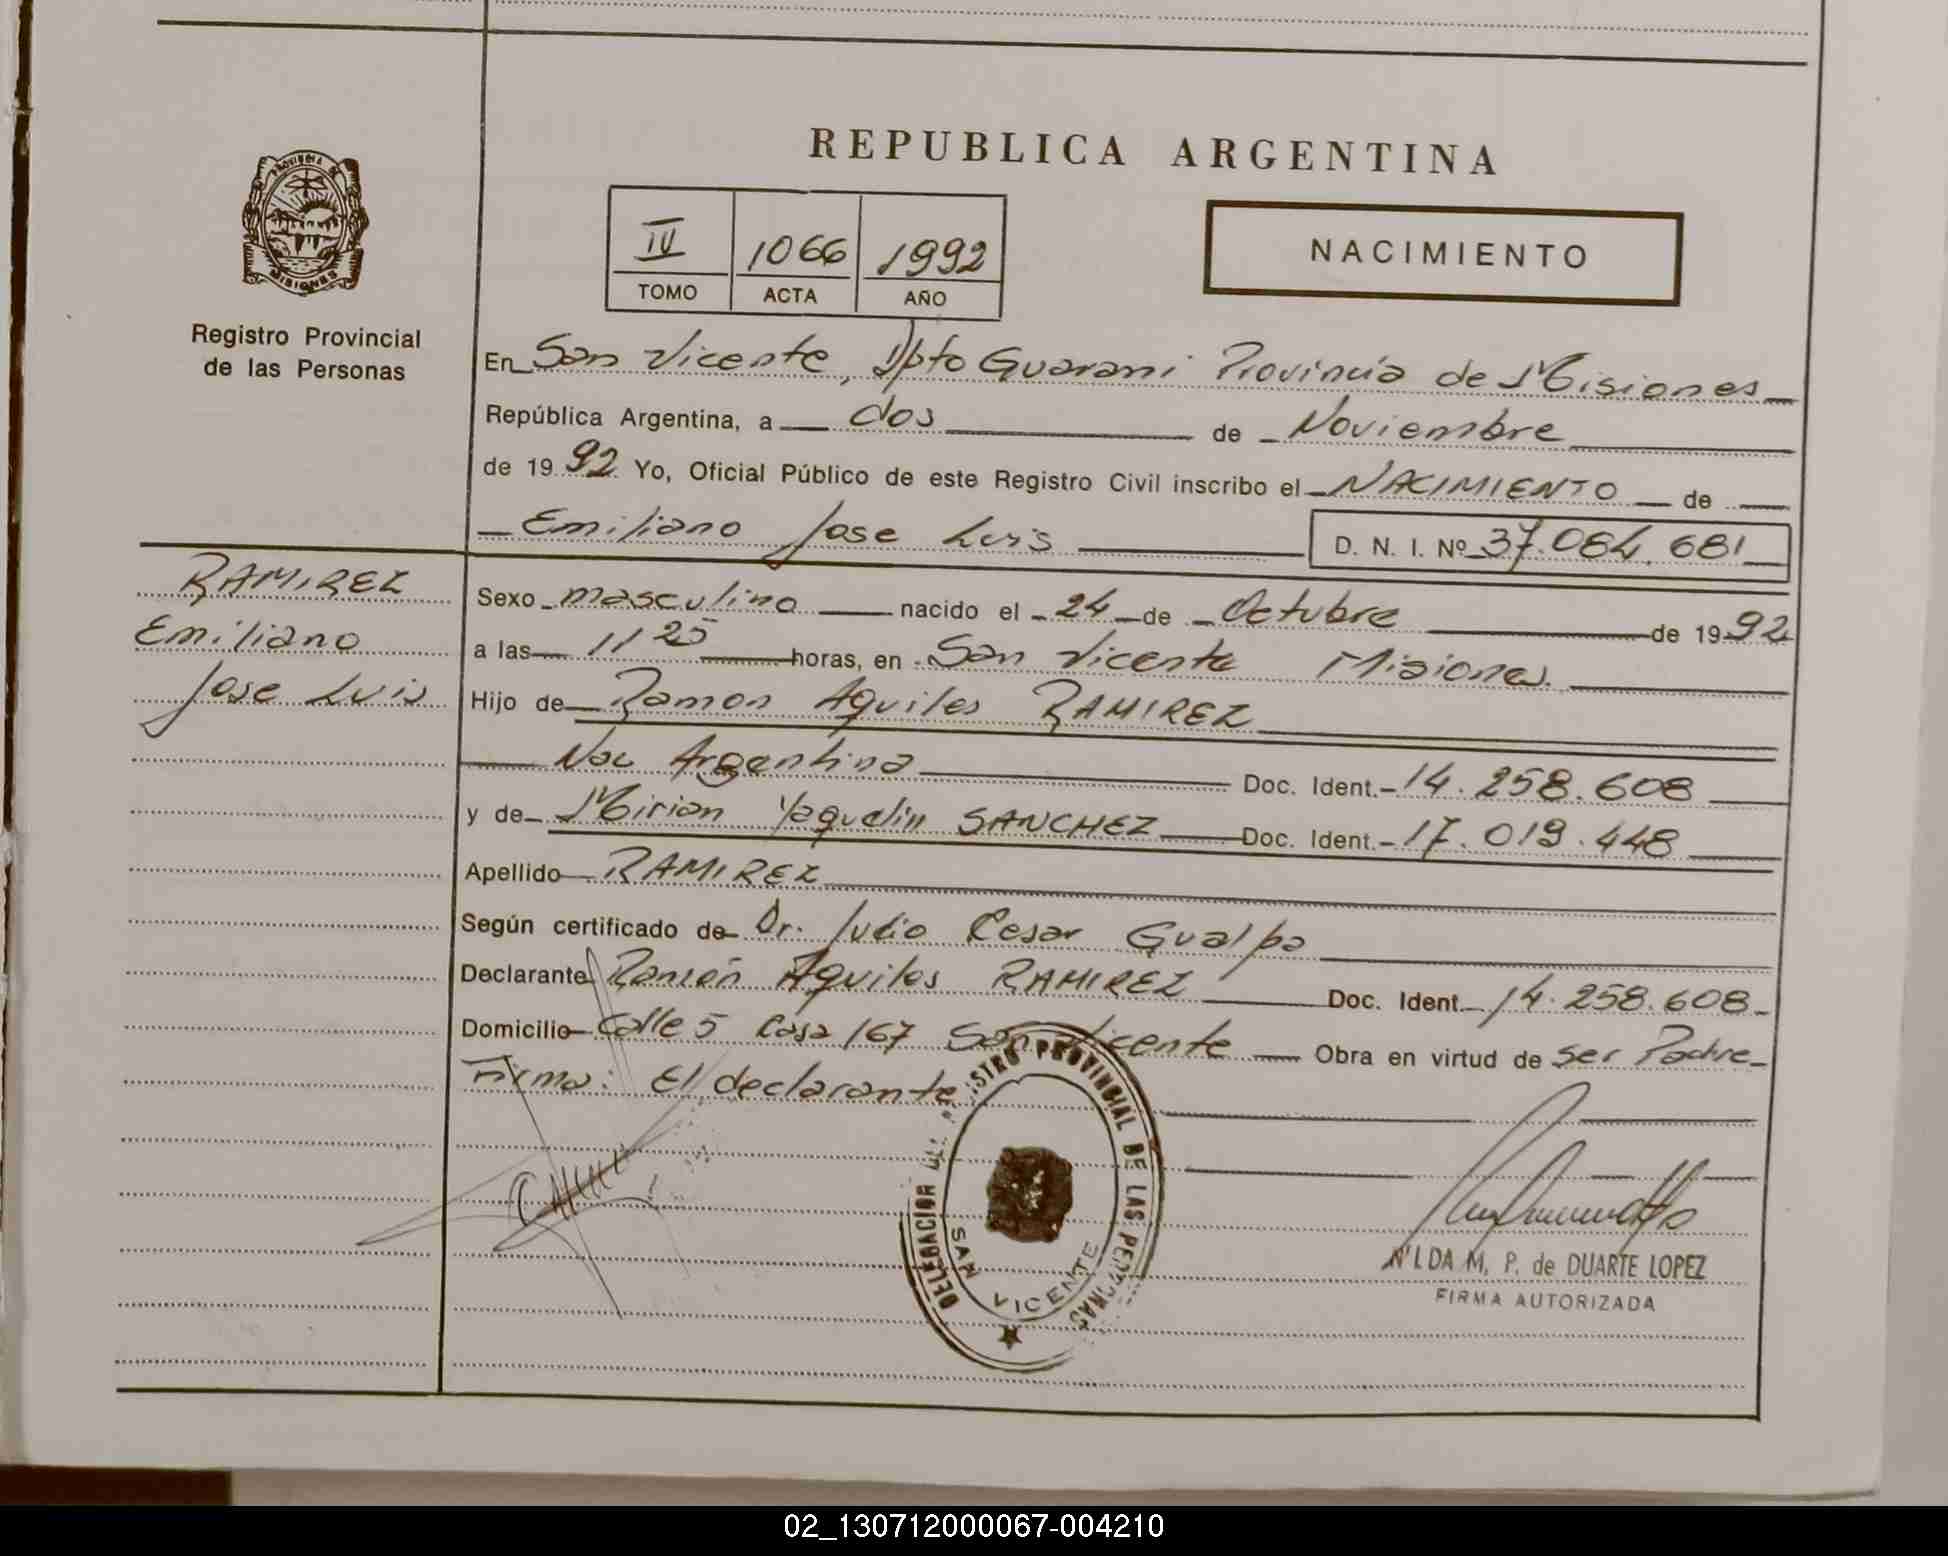 REPUBLICA ARGENTINA
PROVINCIA DE
MISIONES
Registro Provincial
de las Personas
IV 1066 1992
TOMO ACTA AÑO
NACIMIENTO
En San Vicente, Dpto Guarani Provincia de Misiones
República Argentina, a dos de Noviembre
de 1992 Yo, Oficial Público de este Registro Civil inscribo el NACIMIENTO de
Emiliano Jose Luis D. N. I. Nº 37.084.681
RAMIREZ
Emiliano
Jose Luis
Sexo masculino nacido el 24 de Octubre de 1992
a las 11 25 horas, en San Vicente Misiones.
Hijo de Ramon Aquiles RAMIREZ
Nac Argentina Doc. Ident. 14.258.608
y de Mirian Yaquelin SANCHEZ Doc. Ident. 17.019.448
Apellido RAMIREZ
Según certificado de Dr. Julio Cesar Gualpa
Declarante Ramón Aquiles RAMIREZ Doc. Ident. 14.258.608
Domicilio Calle 5 Casa 167 San Vicente Obra en virtud de ser Padre
Firma: El declarante
DELEGACION DEL REGISTRO PROVINCIAL DE LAS PERSONAS
SAN VICENTE
NILDA M. P. de DUARTE LOPEZ
FIRMA AUTORIZADA
02_130712000067-004210